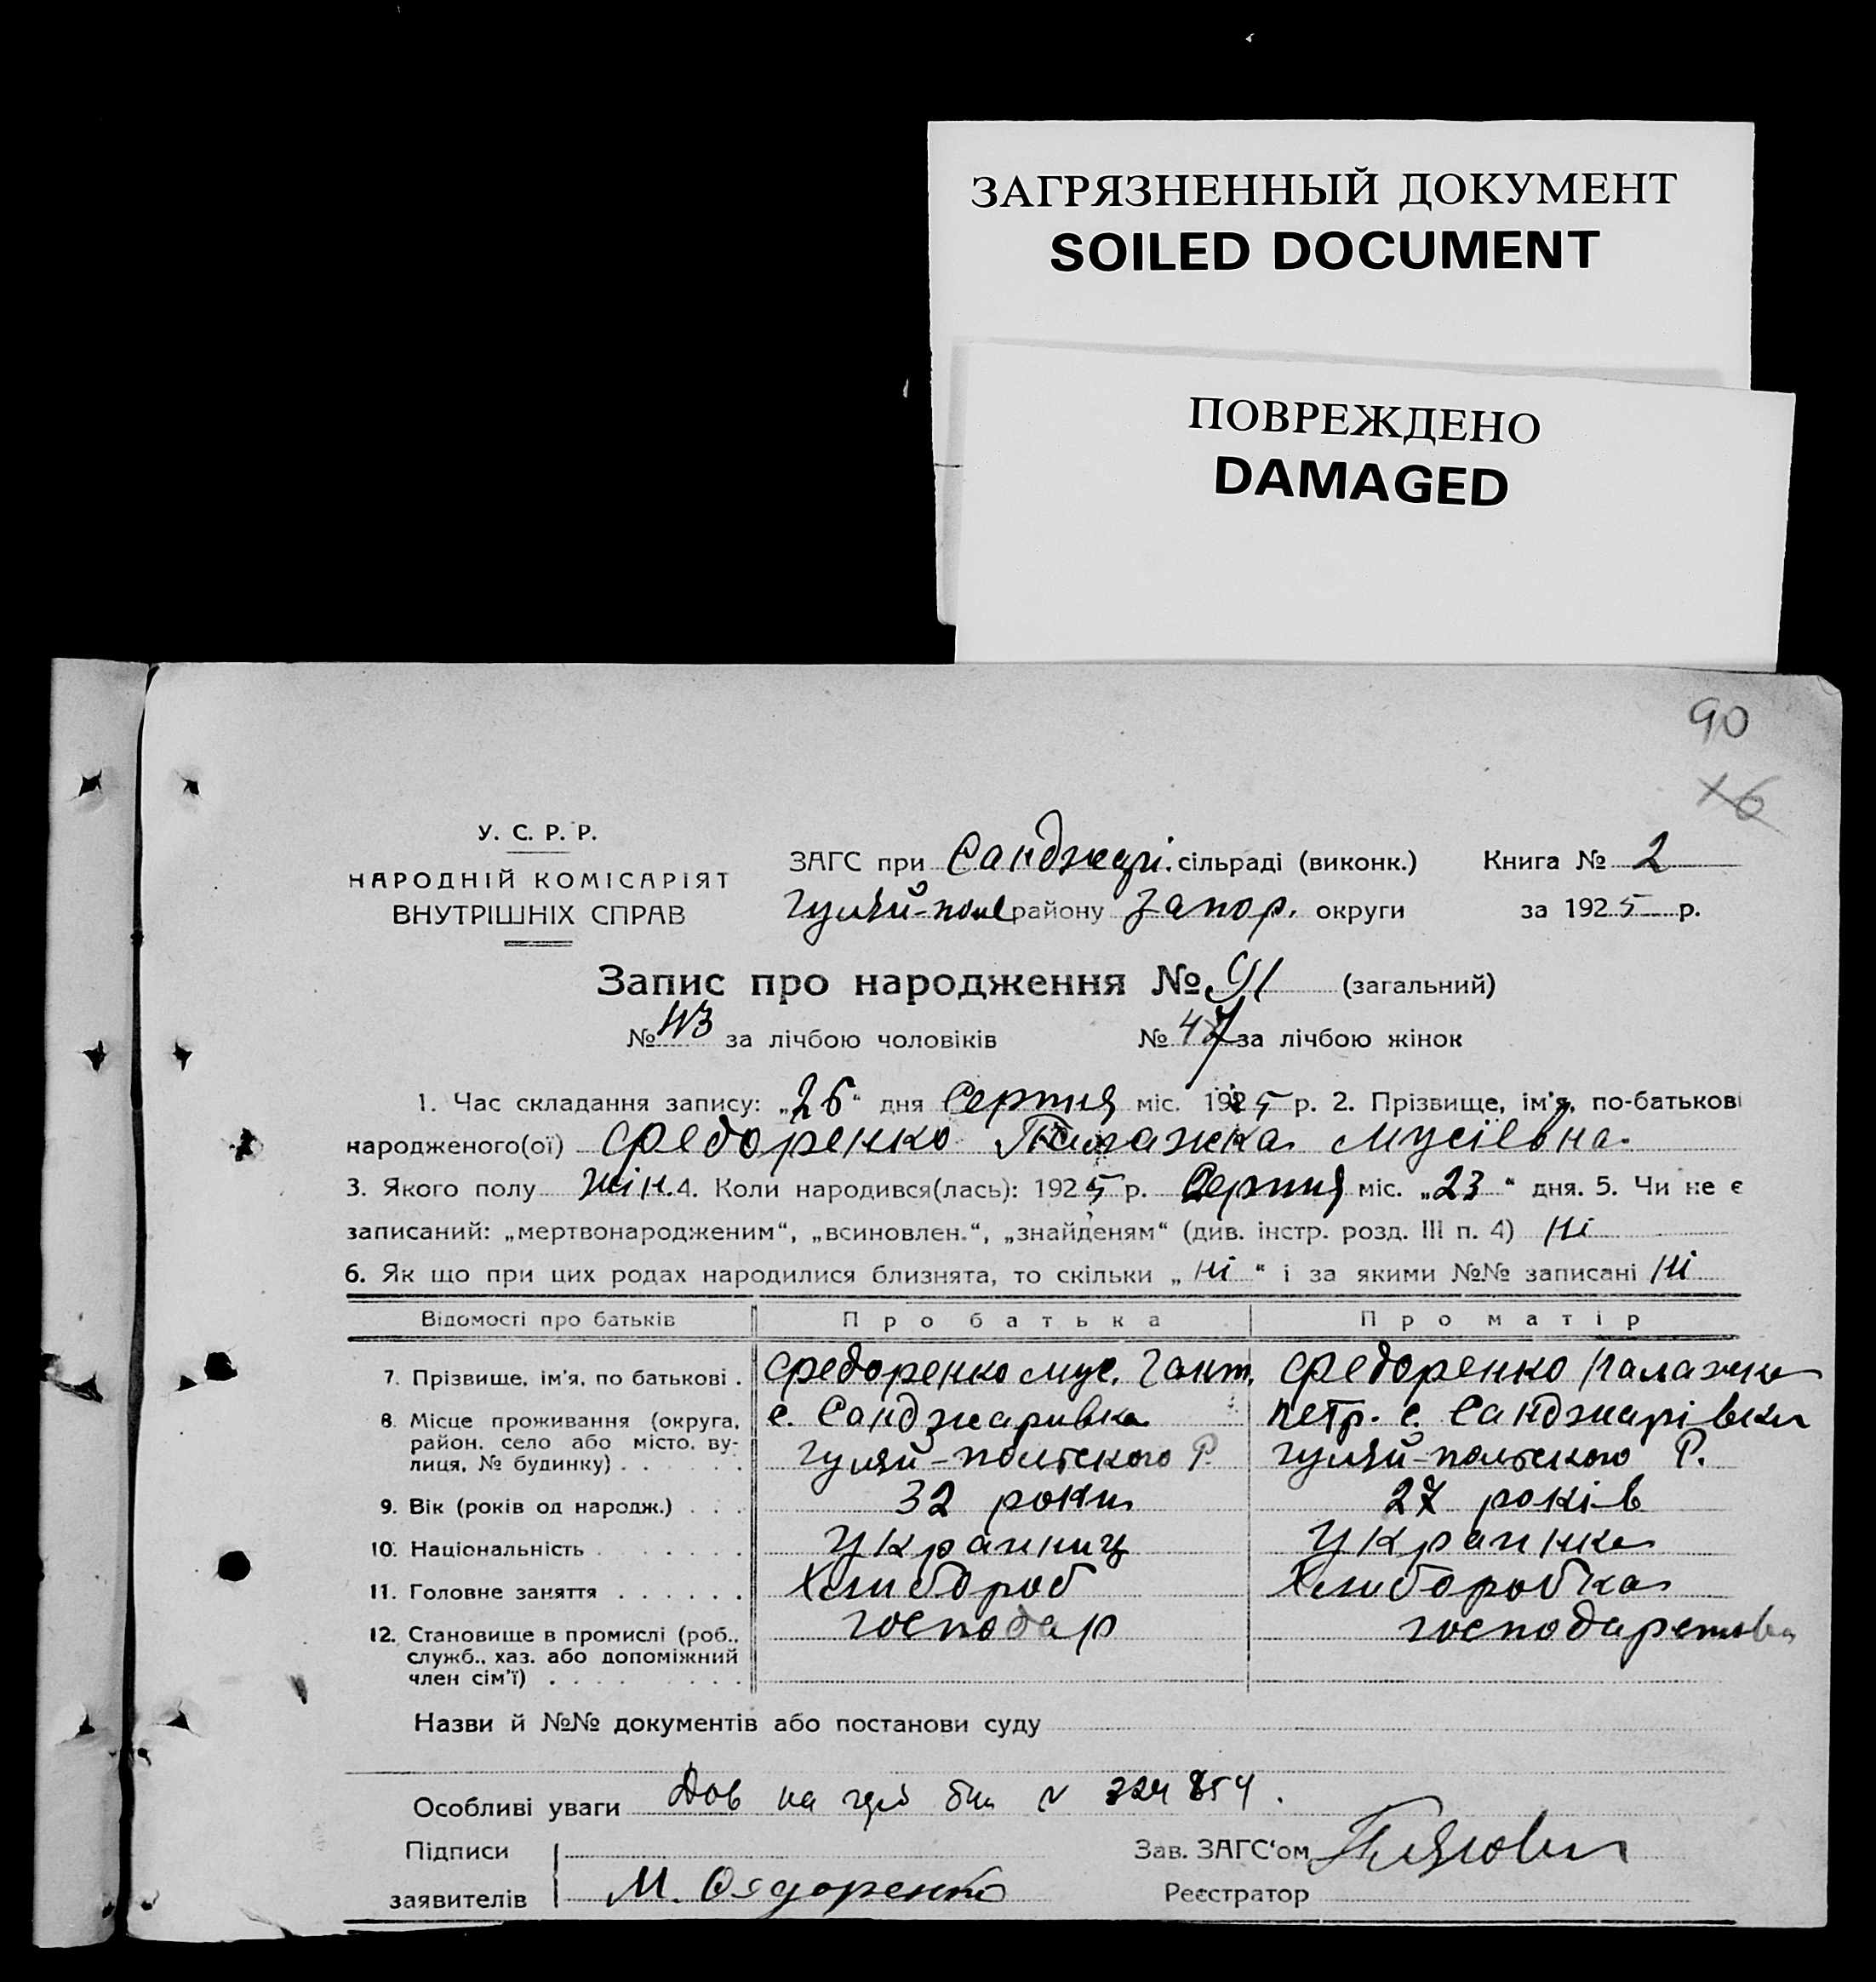 ЗАГРЯЗНЕННЫЙ ДОКУМЕНТ
SOILED DOCUMENT
ПОВРЕЖДЕНО
DAMAGED
90
16
У. С. Р. Р.
НАРОДНІЙ КОМІСАРІЯТ
ВНУТРІШНІХ СПРАВ
ЗАГС при Санджарі. сільраді (виконк.) Книга № 2
Гуляй-поле району Запор. округи за 1925 р.
Запис про народження № 91 (загальний)
№ за лічбою чоловіків № 47 за лічбою жінок
1. Час складання запису: „26" дня Серпня міс. 1925 р. 2. Прізвище, ім'я, по-батькові
народженого(ої) Федоренко Палажка Мусіевна.
3. Якого полу жін. 4. Коли народився(лась): 1925 р. Серпня міс. „23" дня. 5. Чи не є
записаний: „мертвонародженим", „всиновлен.", „знайденям" (див. інстр. розд. III п. 4) Ні
6. Як що при цих родах народилися близнята, то скільки „ні" і за якими №№ записані ні
Відомості про батьків Про батька Про матір
7. Прізвище, ім'я, по батькові . Федоренко Мус. Федоренко Палажка
8. Місце проживання (округа, с. Санджаривка Петр. с. Санджарівки
район, село або місто, ву- Гуляй-польского Р. Гуляй-польского Р.
лиця, № будинку)
9. Вік (років од народж.) 32 роки 27 років
10. Національність Украиниц Украинка
11. Головне заняття Хлибороб Хлиборобка
12. Становище в промислі (роб., господар
служб., хаз. або допоміжний
член сім'ї)
Назви й №№ документів або постанови суду
Особливі уваги Дов на
Підписи Зав. ЗАГС'ом
заявителів М. Федоренко Реєстратор